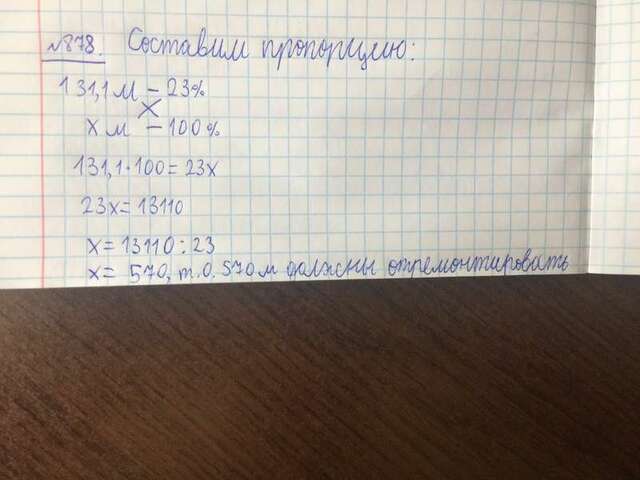 №878. Составим пропорцию:
131,1 м – 23%
X
x м – 100%
131,1·100=23x
23x=13110
x=13110:23
x= 570, т.о. 570 м должны отремонтировать